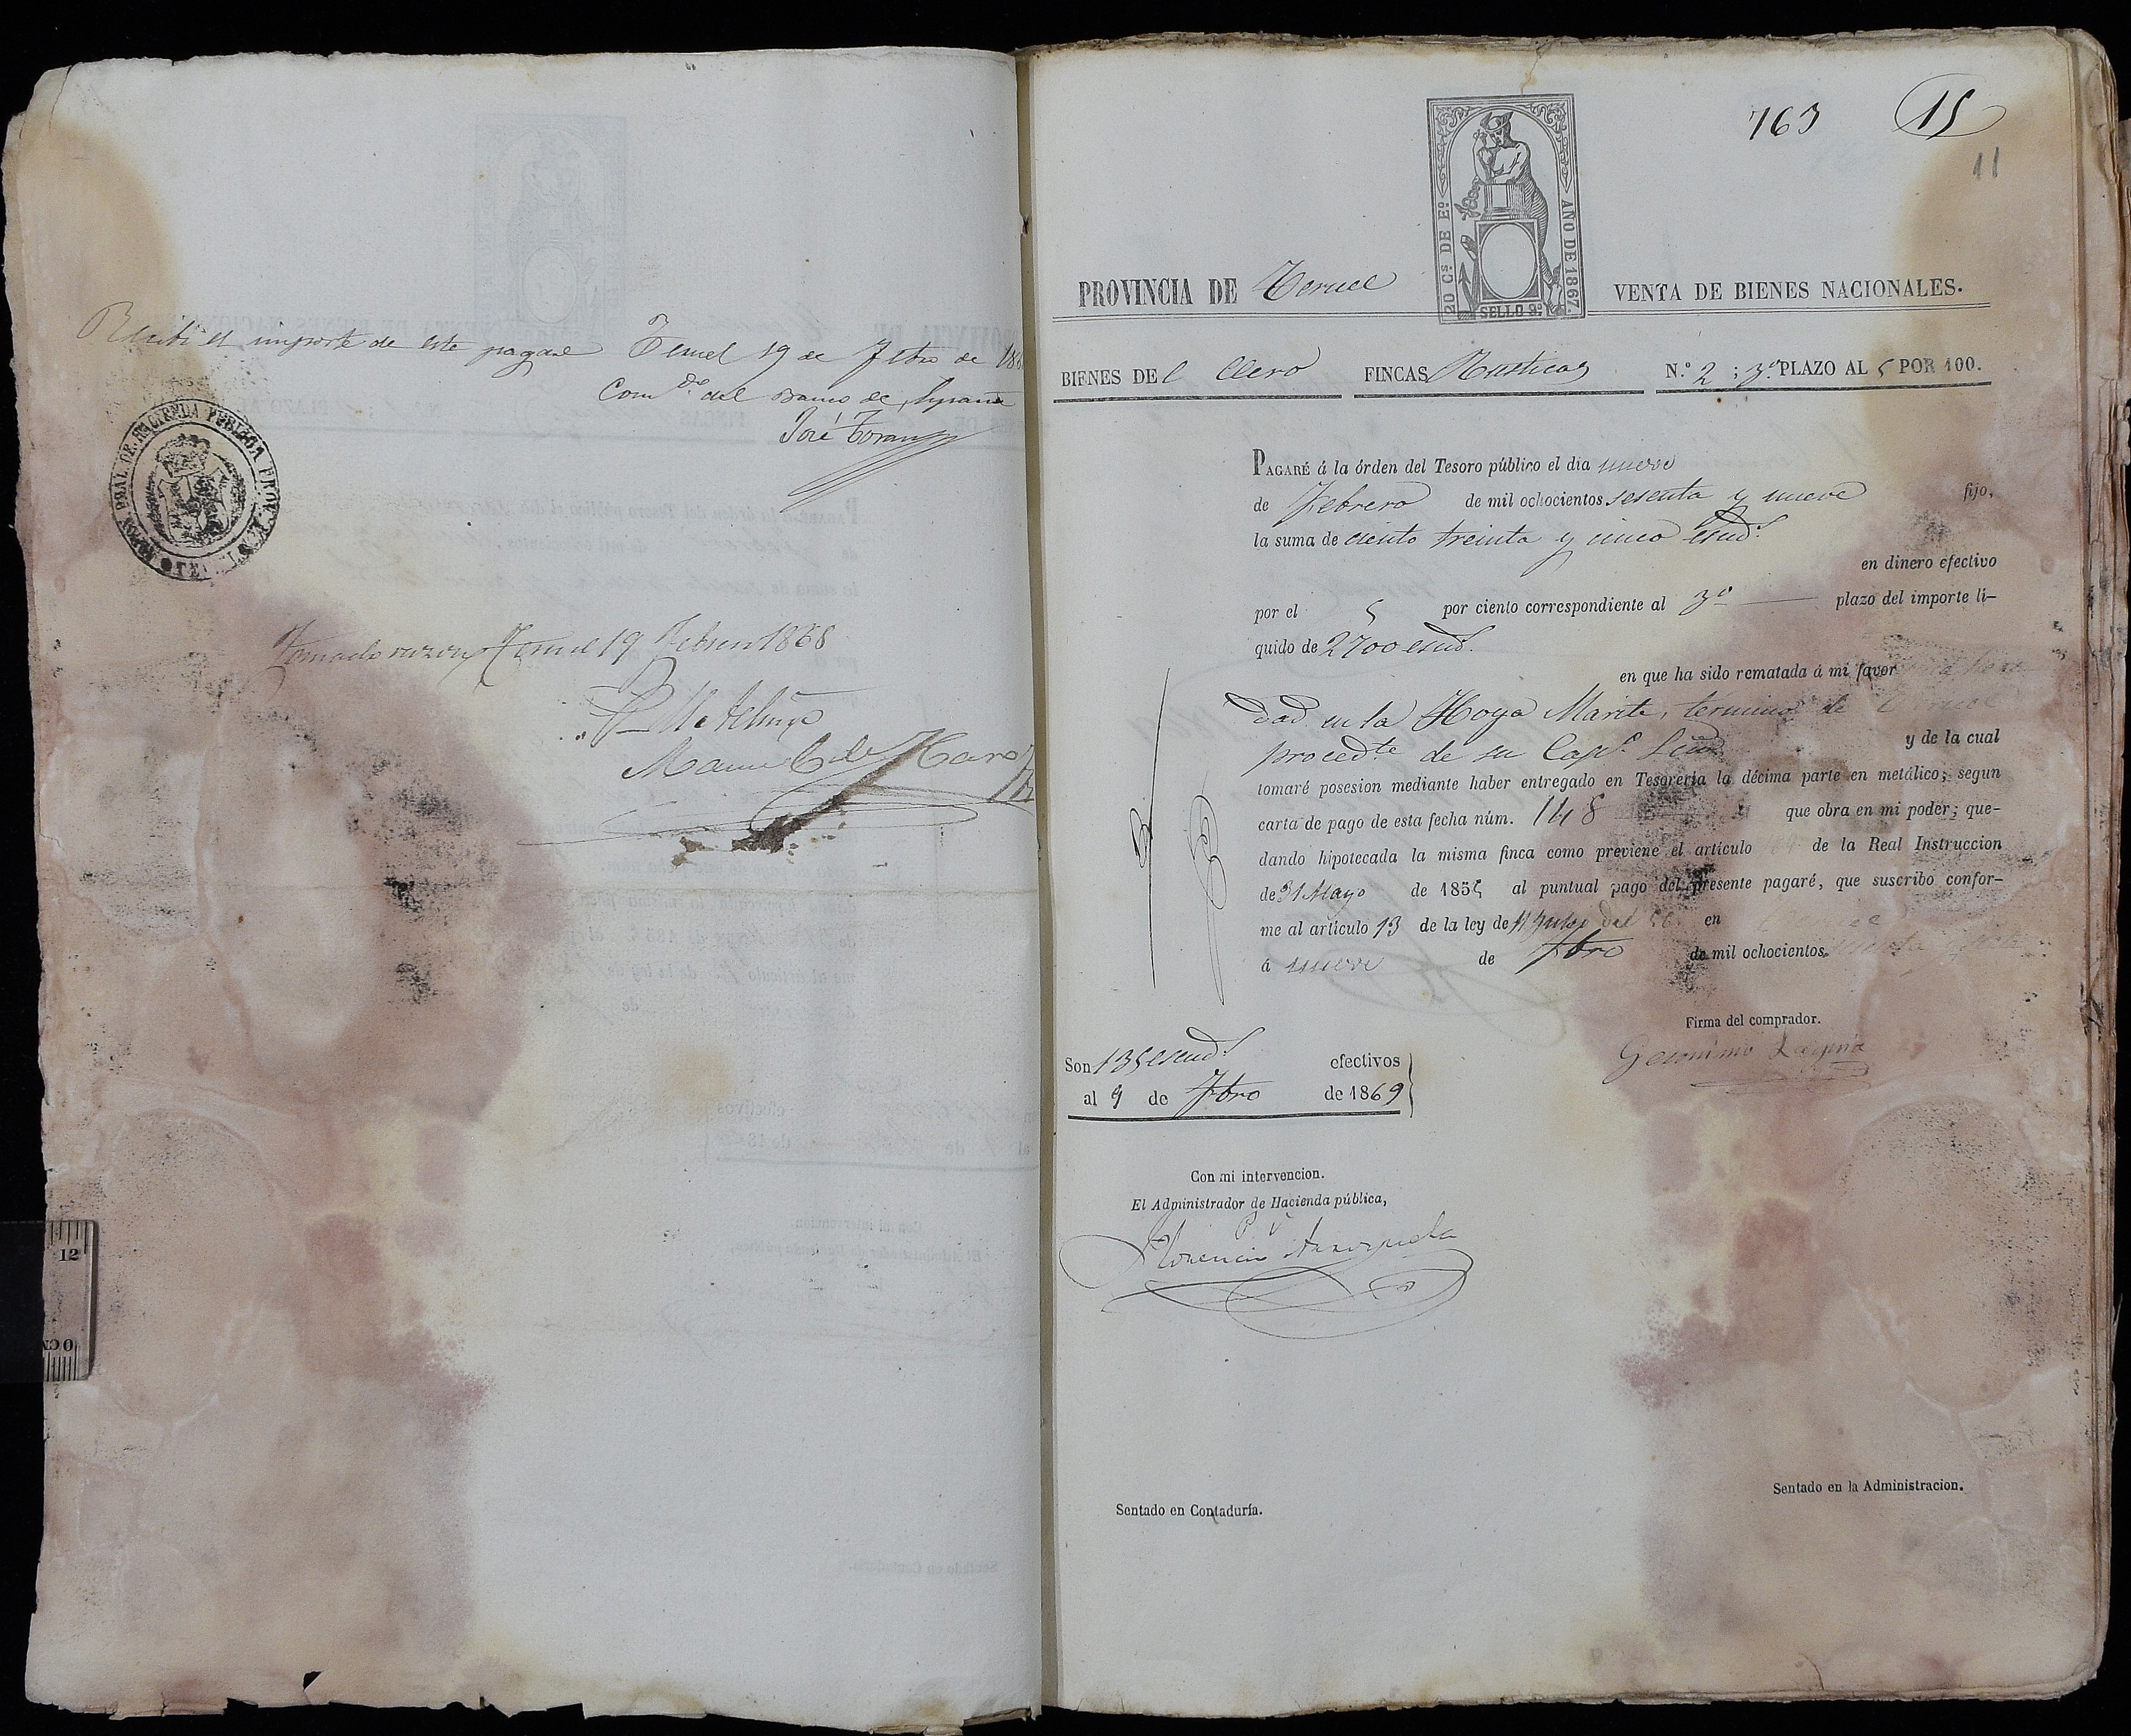 Recibi el importe de este pagaré Teruel 19 de Febro de 186
Comdo del Banco de España
José Toran
Tomada razon Teruel 19 Febrero 1868
Manuel de Haro
763 15
11
20 Cs. DE Eo.
AÑO DE 1867.
SELLO 9o.
PROVINCIA DE Teruel
VENTA DE BIENES NACIONALES.
BIENES DEl Clero FINCAS Rusticas N.º 2 ; 3º PLAZO AL 5 POR 100.
PAGARÉ á la órden del Tesoro público el dia nueve
de Febrero de mil ochocientos sesenta y nueve fijo,
la suma de ciento treinta y cinco escuds
en dinero efectivo
por el 5 por ciento correspondiente al 3º plazo del importe lí-
quido de 2700 escuds.
en que ha sido rematada á mi favor
dad en la Hoya Marite, termino de Teruel
procedte de su Capo
y de la cual
tomaré posesion mediante haber entregado en Tesorería la décima parte en metálico; segun
carta de pago de esta fecha núm. 148 que obra en mi poder; que-
dando hipotecada la misma finca como previene el artículo de la Real Instruccion
de 31 Mayo de 1855 al puntual pago del presente pagaré, que suscribo confor-
me al artículo 13 de la ley de 11 Julio del 56 en
á nueve de Fbro de mil ochocientos
Firma del comprador.
Geronimo
Son 135 escuds efectivos
al 9 de Fbro de 1869
Con mi intervencion.
El Administrador de Hacienda pública,
P. V.
Florencio
Sentado en la Administracion.
Sentado en Contaduría.
12